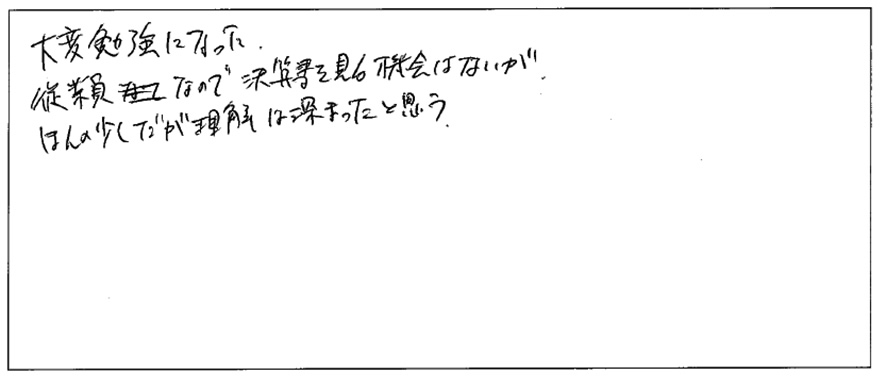 大変勉強になった.
従業員なので決算書を見る機会はないが.
ほんの少しだが理解は深まったと思う.